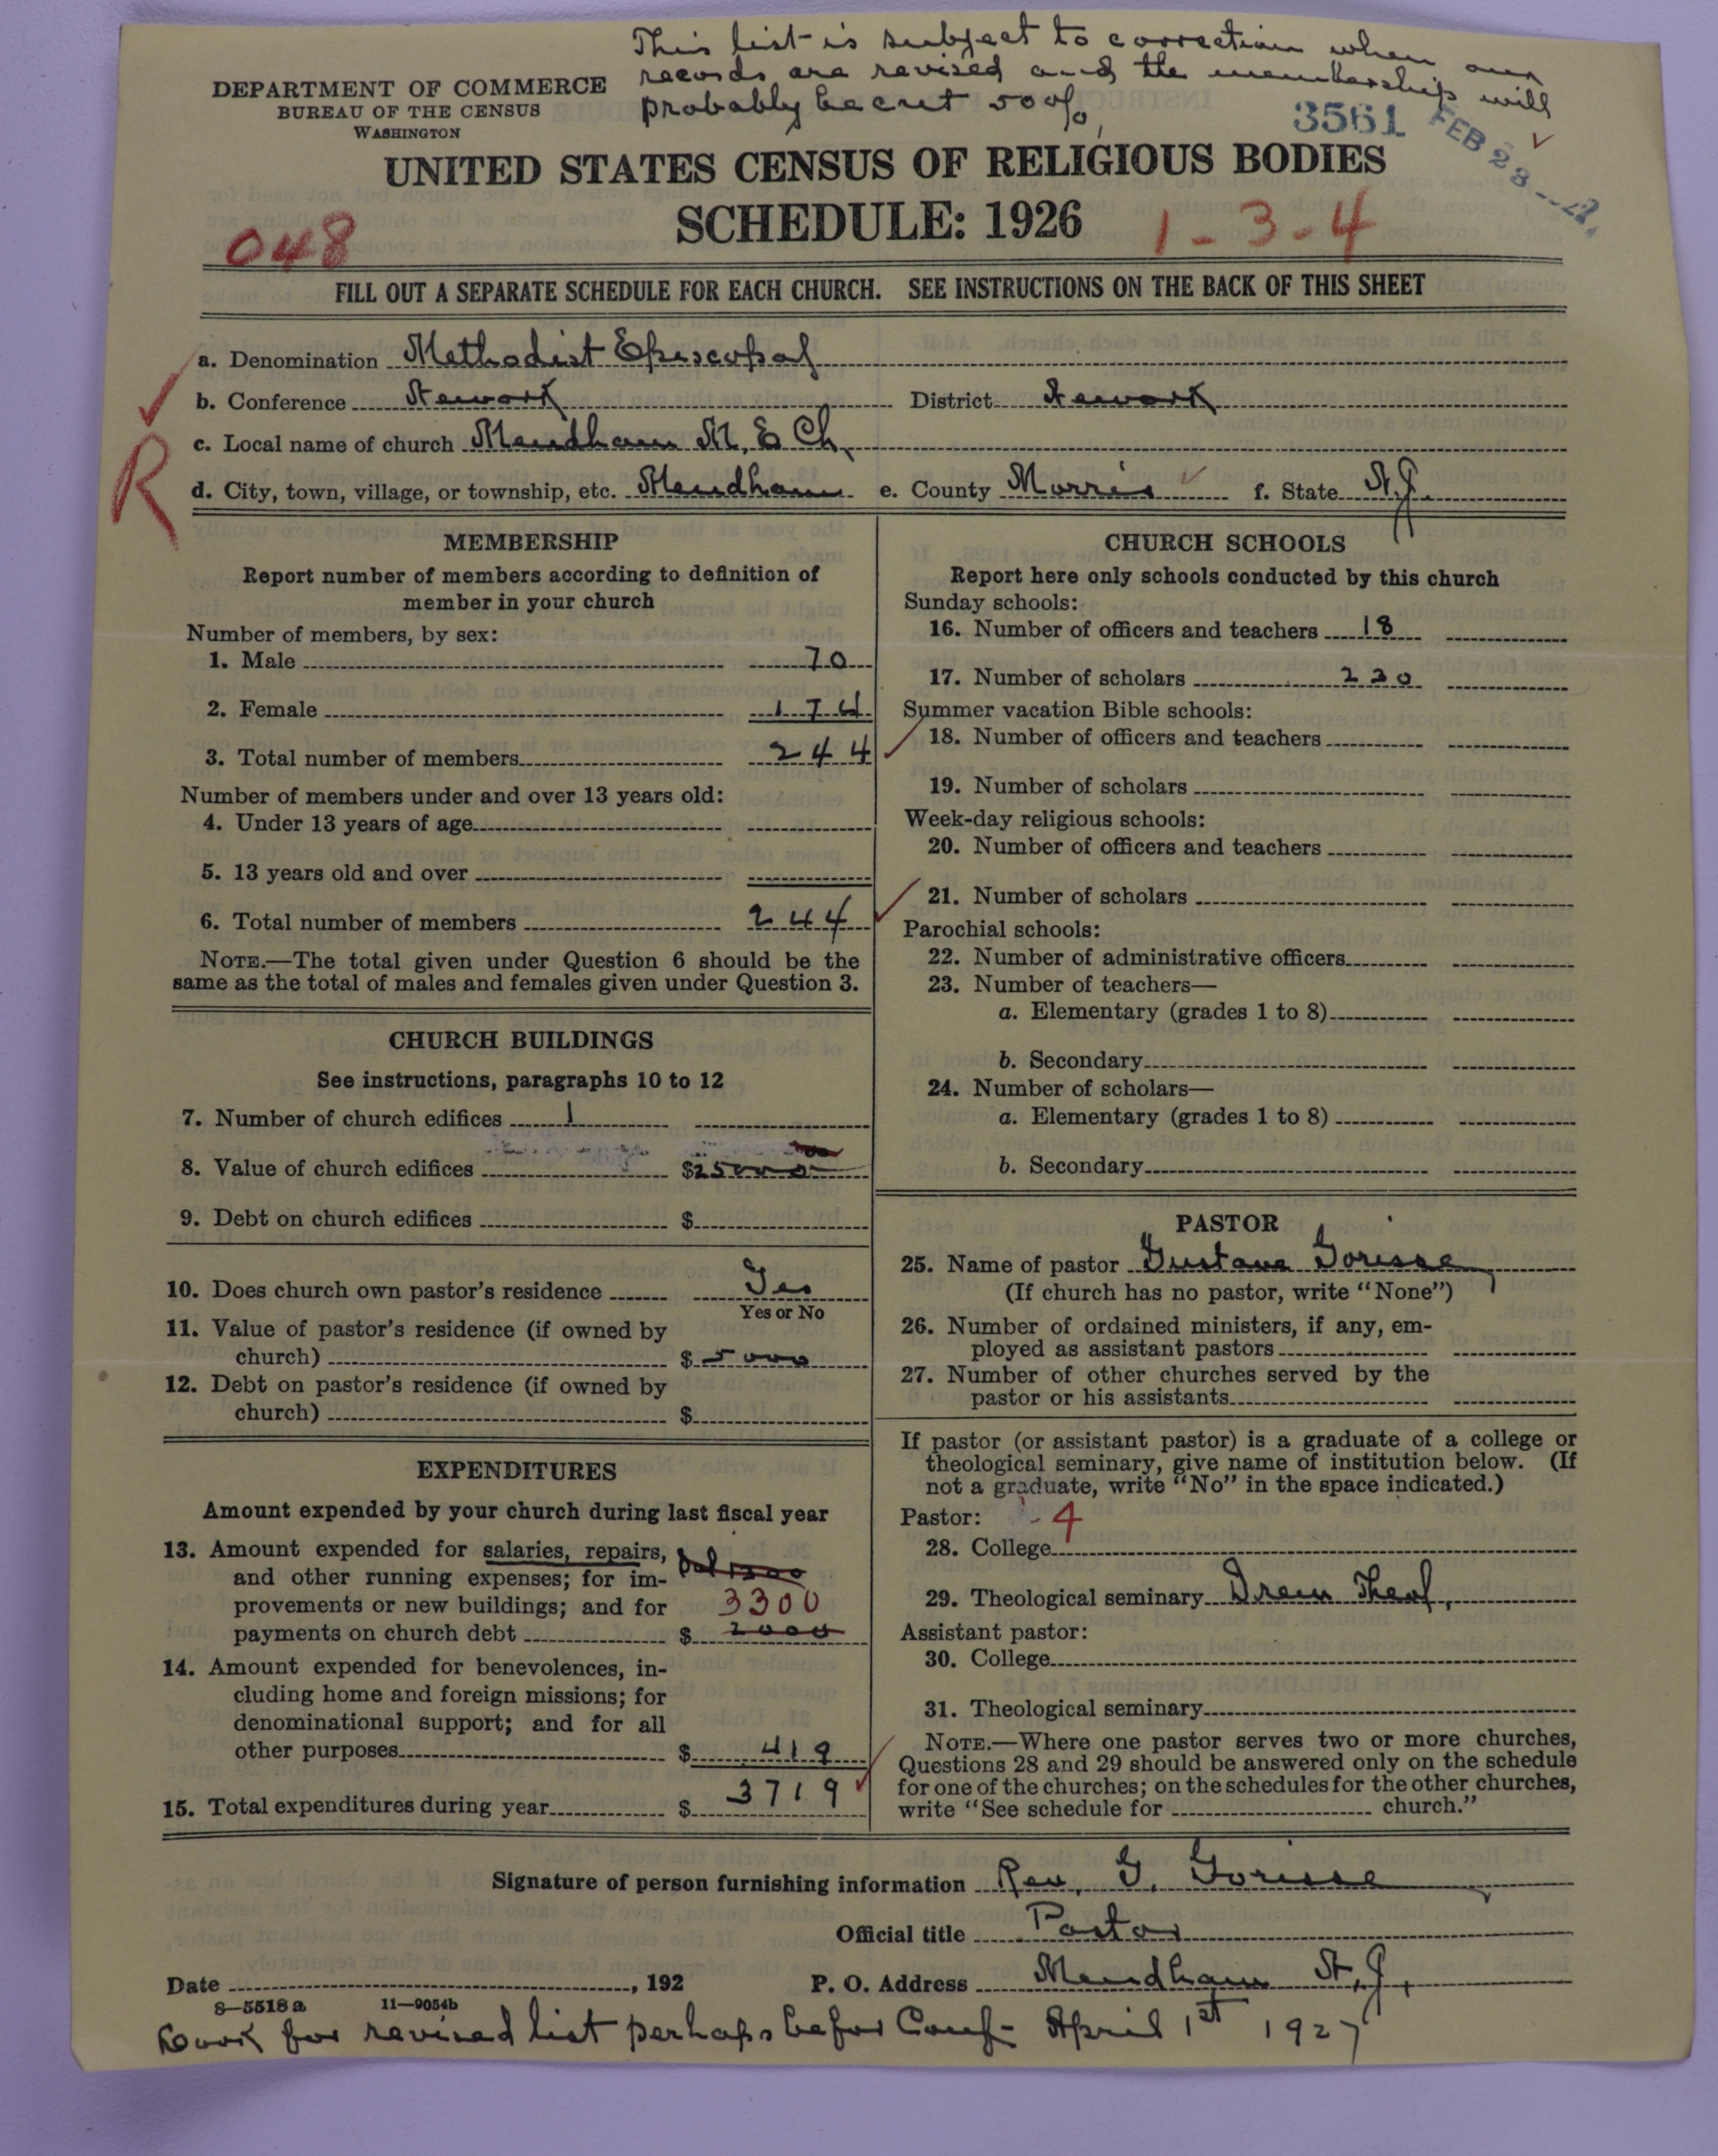 This list is subject to correction when our
records are revised and the membership will
probably be cut 50%
DEPARTMENT OF COMMERCE
BUREAU OF THE CENSUS
WASHINGTON
3561
FEB 28
UNITED STATES CENSUS OF RELIGIOUS BODIES
SCHEDULE: 1926
048
1-3-4
FILL OUT A SEPARATE SCHEDULE FOR EACH CHURCH. SEE INSTRUCTIONS ON THE BACK OF THIS SHEET
a. Denomination Methodist Episcopal
b. Conference Newark District Newark
c. Local name of church Mendham M. E Ch.
R
d. City, town, village, or township, etc. Mendham e. County Morris f. State N.J.
MEMBERSHIP
Report number of members according to definition of
member in your church
Number of members, by sex:
1. Male 70
2. Female 174
3. Total number of members 244
Number of members under and over 13 years old:
4. Under 13 years of age
5. 13 years old and over
6. Total number of members 244
NOTE.—The total given under Question 6 should be the
same as the total of males and females given under Question 3.
CHURCH BUILDINGS
See instructions, paragraphs 10 to 12
7. Number of church edifices 1
8. Value of church edifices $25000
9. Debt on church edifices $
10. Does church own pastor's residence Yes
Yes or No
11. Value of pastor's residence (if owned by
church) $ 5000
12. Debt on pastor's residence (if owned by
church) $
EXPENDITURES
Amount expended by your church during last fiscal year
13. Amount expended for salaries, repairs,
and other running expenses; for im-
provements or new buildings; and for 3300
payments on church debt $ 2000
14. Amount expended for benevolences, in-
cluding home and foreign missions; for
denominational support; and for all
other purposes $ 419
15. Total expenditures during year $ 3719
CHURCH SCHOOLS
Report here only schools conducted by this church
Sunday schools:
16. Number of officers and teachers 18
17. Number of scholars 230
Summer vacation Bible schools:
18. Number of officers and teachers
19. Number of scholars
Week-day religious schools:
20. Number of officers and teachers
21. Number of scholars
Parochial schools:
22. Number of administrative officers
23. Number of teachers—
a. Elementary (grades 1 to 8)
b. Secondary
24. Number of scholars—
a. Elementary (grades 1 to 8)
b. Secondary
PASTOR
25. Name of pastor Gustave Gorisse
(If church has no pastor, write "None")
26. Number of ordained ministers, if any, em-
ployed as assistant pastors
27. Number of other churches served by the
pastor or his assistants
If pastor (or assistant pastor) is a graduate of a college or
theological seminary, give name of institution below. (If
not a graduate, write "No" in the space indicated.)
Pastor: - 4
28. College
29. Theological seminary Drew Theol.
Assistant pastor:
30. College
31. Theological seminary
NOTE.—Where one pastor serves two or more churches,
Questions 28 and 29 should be answered only on the schedule
for one of the churches; on the schedules for the other churches,
write "See schedule for church."
Signature of person furnishing information Rev. G. Gorisse
Official title Pastor
Date , 192 P. O. Address Mendham N.J.
8—5518 a 11—9054b
Look for revised list perhaps befor Conf- April 1st 1927